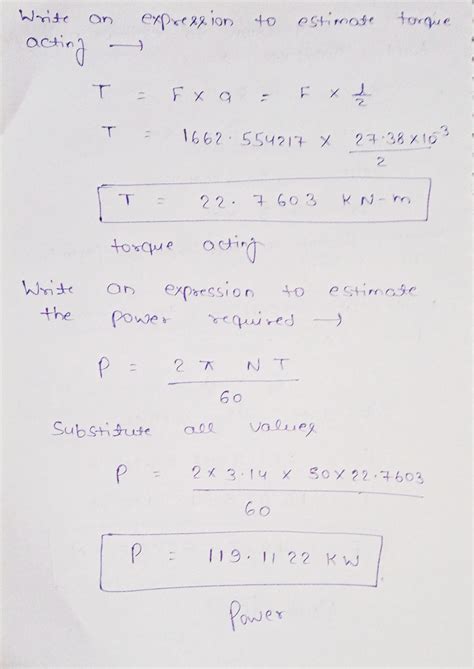 Write an expression to estimate torque
acting →
T = F × a = F × l/2
T = 1662.554217 × 27.38×10⁻³/2
T = 22.7603 KN-m
torque acting
Write an expression to estimate
the power required →
P = 2 π N T / 60
Substitute all values
P = 2 × 3.14 × 50 × 22.7603 / 60
P = 119.1122 KW
Power